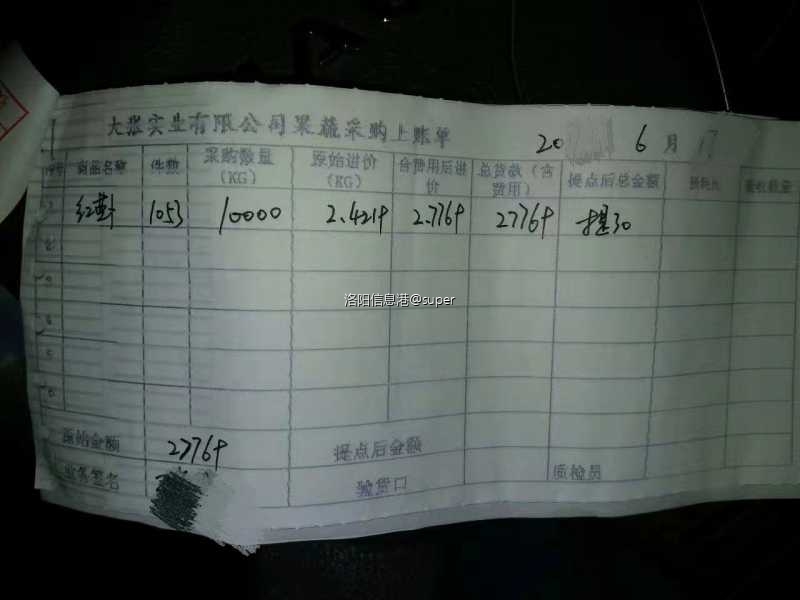 大张实业有限公司果蔬采购上账单
20 6 月 17
序号 商品名称 件数 采购数量(KG) 原始进价(KG) 含费用后进价 总货款(含费用) 提点后总金额 损耗比 验收数量
1053 10000 2.4219 2.7769 27769 提30
2
4
5
6
洛阳信息港@super
原始金额 27769 提点后金额
业务签名 验货口 质检员